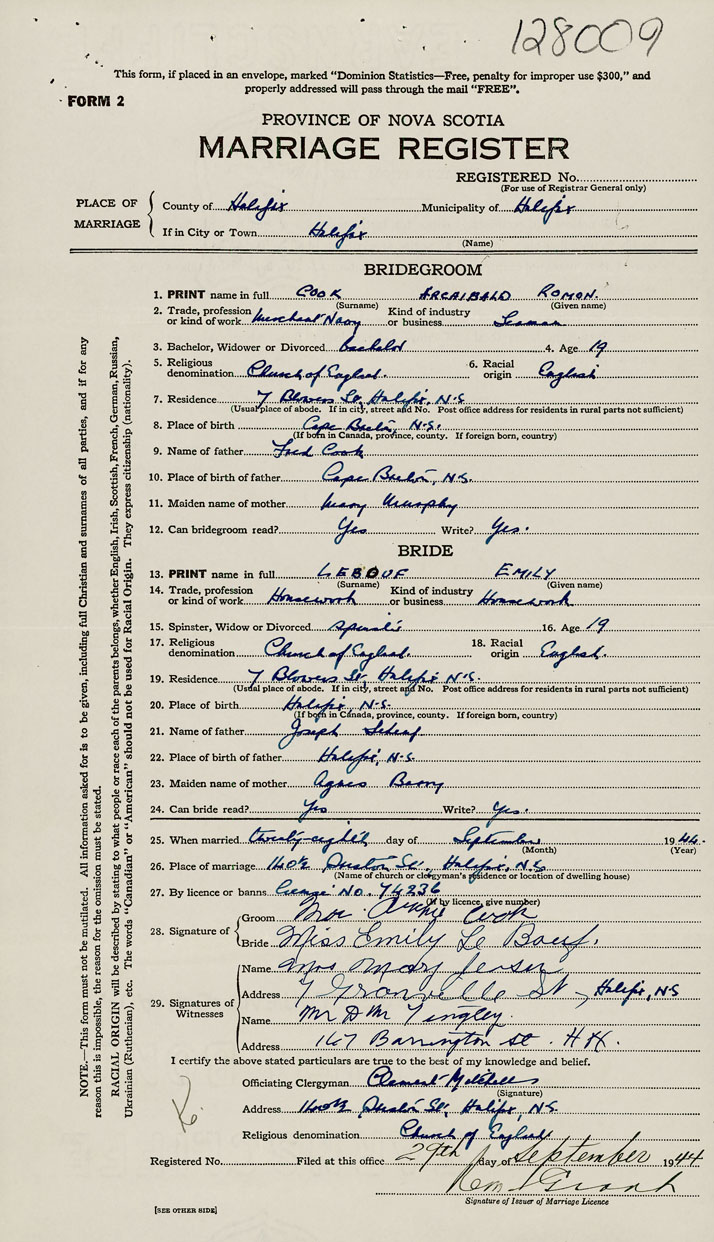 128009
This form, if placed in an envelope, marked “Dominion Statistics—Free, penalty for improper use $300,” and
properly addressed will pass through the mail “FREE”.
FORM 2
PROVINCE OF NOVA SCOTIA
MARRIAGE REGISTER
REGISTERED No.
(For use of Registrar General only)
PLACE OF MARRIAGE
County of Halifax Municipality of Halifax
If in City or Town Halifax
(Name)
BRIDEGROOM
1. PRINT name in full COOK ARCHIBALD ROMON.
(Surname) (Given name)
2. Trade, profession or kind of work Merchant Navy Kind of industry or business Seaman
3. Bachelor, Widower or Divorced Bachelor 4. Age 19
5. Religious denomination Church of England. 6. Racial origin English
7. Residence 7 Blowers St, Halifax, N.S
(Usual place of abode. If in city, street and No. Post office address for residents in rural parts not sufficient)
8. Place of birth Cape Breton, N.S.
(If born in Canada, province, county. If foreign born, country)
9. Name of father Fred Cook
10. Place of birth of father Cape Breton, N.S.
11. Maiden name of mother Mary Murphy
12. Can bridegroom read? Yes Write? Yes.
BRIDE
13. PRINT name in full LEBOUF EMILY
(Surname) (Given name)
14. Trade, profession or kind of work Housework Kind of industry or business Housework
15. Spinster, Widow or Divorced Spinster 16. Age 19
17. Religious denomination Church of England. 18. Racial origin English.
19. Residence 7 Blowers St, Halifax N.S.
(Usual place of abode. If in city, street and No. Post office address for residents in rural parts not sufficient)
20. Place of birth Halifax, N.S.
(If born in Canada, province, county. If foreign born, country)
21. Name of father Joseph
22. Place of birth of father Halifax, N.S.
23. Maiden name of mother Agnes
24. Can bride read? Yes Write? Yes.
25. When married twenty-eighth day of September 1944.
(Month) (Year)
26. Place of marriage St., Halifax, N.S
(Name of church or clergyman's residence or location of dwelling house)
27. By licence or banns license No. 74236
(If by licence, give number)
28. Signature of
Groom Mr Archie Cook
Bride Miss Emily Le Boeuf.
29. Signatures of Witnesses
Name Mrs Mary
Address 7 Granville St, Halifax, N.S
Name Mr D M Tingley.
Address 167 Barrington St. HX.
I certify the above stated particulars are true to the best of my knowledge and belief.
Officiating Clergyman Clement Mitchell
(Signature)
Address St., Halifax, N.S.
Religious denomination Church of England
Registered No. Filed at this office 29th day of September 1944
Grant
Signature of Issuer of Marriage Licence
[SEE OTHER SIDE]
NOTE.—This form must not be mutilated. All information asked for is to be given, including full Christian and surnames of all parties, and if for any
reason this is impossible, the reason for the omission must be stated.
RACIAL ORIGIN will be described by stating to what people or race each of the parents belongs, whether English, Irish, Scottish, French, German, Russian,
Ukrainian (Ruthenian), etc. The words “Canadian” or “American” should not be used for Racial Origin. They express citizenship (nationality).